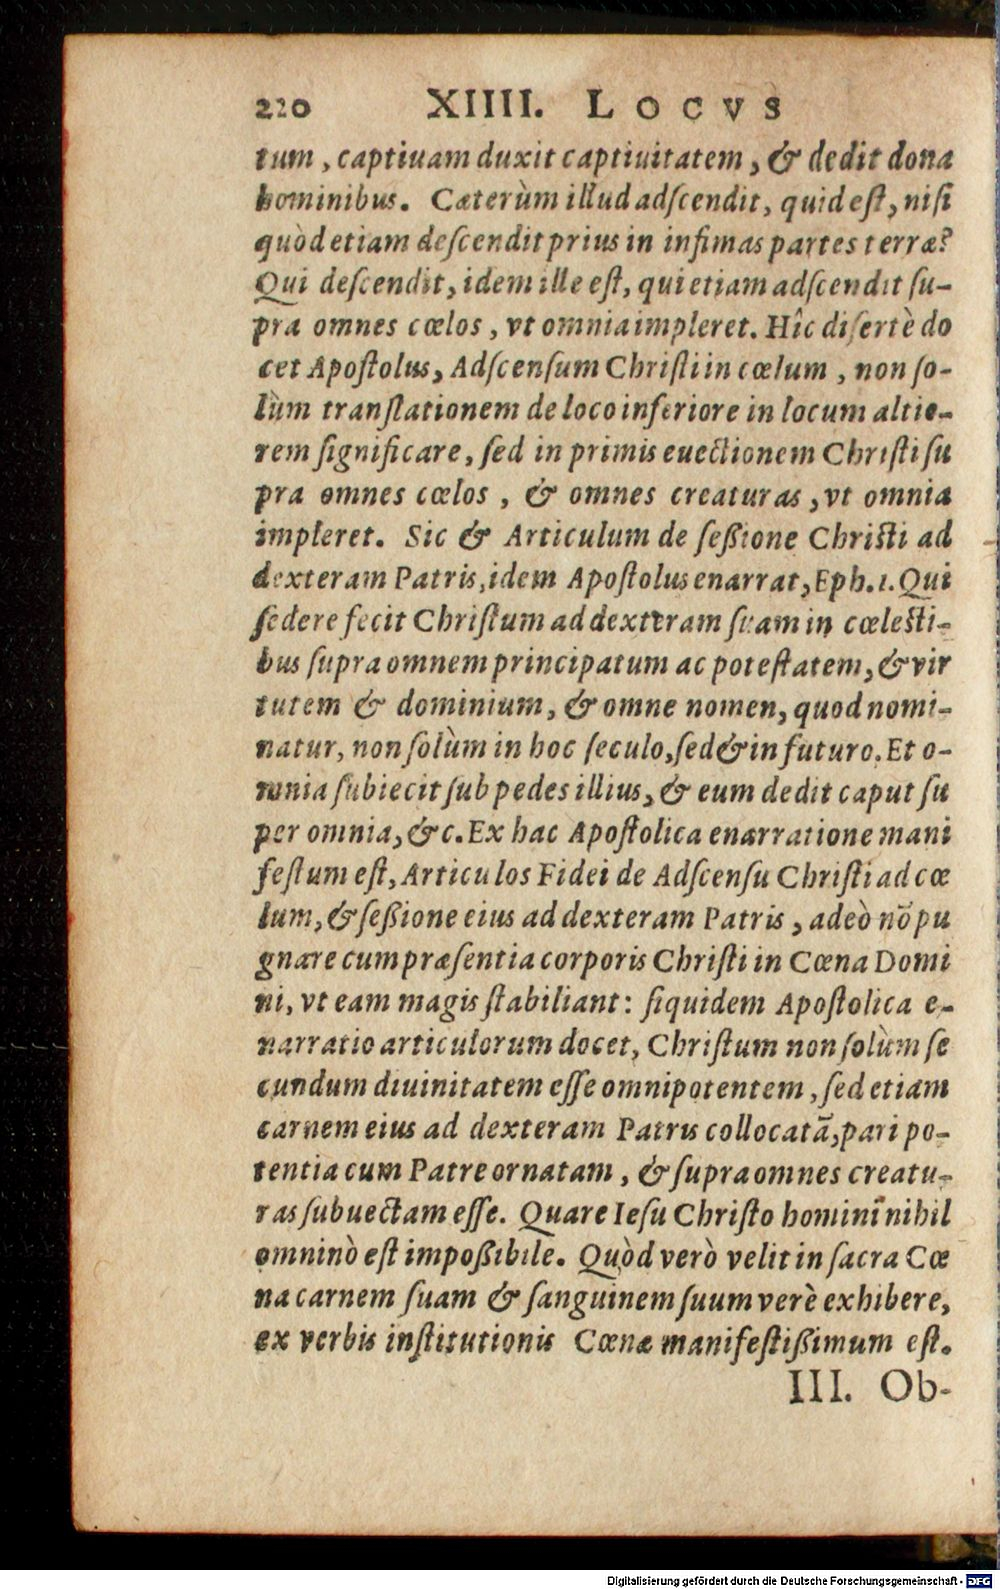 220 XIIII. Locvs
tum, captiuam duxit captiuitatem, & dedit dona
hominibus. Cæterùm illud adſcendit, quid eſt, niſi
quòd etiam deſcendit prius in infimas partes terræ?
Qui deſcendit, idem ille eſt, qui etiam adſcendit ſu-
pra omnes cœlos, vt omnia impleret. Hîc diſertè do
cet Apoſtolus, Adſcenſum Chriſti in cœlum, non ſo-
lùm tranſlationem de loco inferiore in locum altio-
rem ſignificare, ſed in primis euectionem Chriſti ſu
pra omnes cœlos, & omnes creaturas, vt omnia
impleret. Sic & Articulum de ſeßione Chriſti ad
dexteram Patris, idem Apoſtolus enarrat, Eph. 1. Qui
ſedere fecit Chriſtum ad dexteram ſuam in cœleſti-
bus ſupra omnem principatum ac poteſtatem, & vir
tutem & dominium, & omne nomen, quod nomi-
natur, non ſolùm in hoc ſeculo, ſed & in futuro. Et o-
mnia ſubiecit ſub pedes illius, & eum dedit caput ſu
per omnia, &c. Ex hac Apoſtolica enarratione mani
feſtum eſt, Articulos Fidei de Adſcenſu Chriſti ad cœ
lum, & ſeßione eius ad dexteram Patris, adeò nō pu
gnare cum præſentia corporis Chriſti in Cœna Domi
ni, vt eam magis ſtabiliant: ſiquidem Apoſtolica e-
narratio articulorum docet, Chriſtum non ſolùm ſe
cundum diuinitatem eſſe omnipotentem, ſed etiam
carnem eius ad dexteram Patris collocatā, pari po-
tentia cum Patre ornatam, & ſupra omnes creatu-
ras ſubuectam eſſe. Quare Ieſu Chriſto homini nihil
omninò eſt impoßibile. Quòd verò velit in ſacra Cœ
na carnem ſuam & ſanguinem ſuum verè exhibere,
ex verbis inſtitutionis Cœnæ manifeſtißimum eſt.
III. Ob-
Digitalisierung gefördert durch die Deutsche Forschungsgemeinschaft - DFG